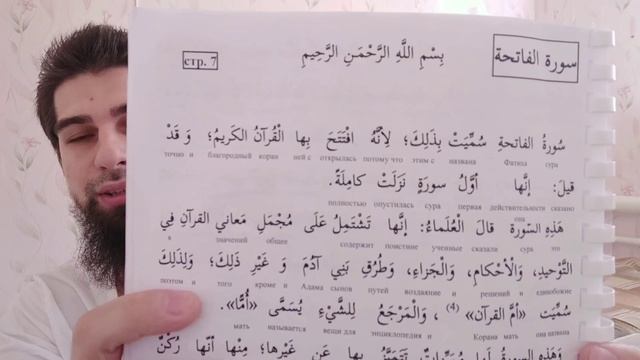 стр. 7 بِسْمِ اللَّهِ الرَّحْمَنِ الرَّحِيمِ سورة الفاتحة
سُورَةُ الفاتحةِ سُمِّيَتْ بِذَلِكَ؛ لِأَنَّهُ افْتَتَحَ بِها الْقُرآنُ الكَريمُ؛ وَ قَدْ
точно и благородный коран ней с открылась потому что этим с названа Фатиха сура
قيلَ: إِنَّها أوَّلُ سورَةٍ نَزَلَتْ كامِلَةً.
полностью опустилась сура первая действительности сказано
она
هَذِهِ السّورة قالَ الْعُلَماءُ: إِنَّها تَشْتَمِلُ عَلَى مُجْمَلِ مَعاني القرآنِ فِي
в значений общее содержит поистине ученные сказали сура это
التَّوْحيدِ، وَالْأحْكامِ، وَالْجَزاءِ، وَطُرُقِ بَنِي آدَمَ وَ غَيْرِ ذَلِكَ؛ وَلِذَلِكَ
поэтом и того кроме и Адама сынов путей воздаяние и решений и единобожие
سُمِّيَتْ «أمَّ القرآن» (4)، وَالْمَرْجَعُ لِلشَّيْءِ يُسَمَّى «أُمًّا».
мать называется вещи для энциклопедия и Корана мать она названа
وَهَذِهِ السورةُ لَها عَنْ غَيْرِها؛ مِنْها أنّها رُكْنٌ